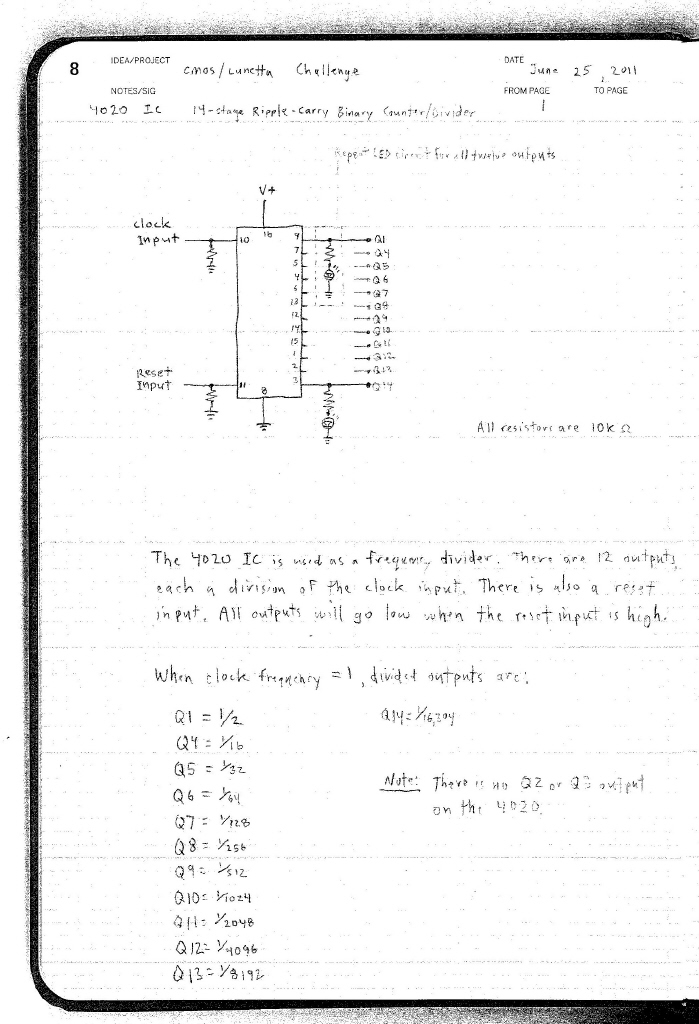 8
IDEA/PROJECT
CMOS/Lunetta Challenge
DATE
June 25, 2011
NOTES/SIG
4020 IC 14-stage Ripple-Carry Binary Counter/Divider
FROM PAGE
1
TO PAGE
Repeat LED circuit for all twelve outputs
V+
Clock
Input
10
16
9
7
5
4
6
13
12
14
15
1
2
3
Q1
Q4
Q5
Q6
Q7
Q8
Q9
Q10
Q11
Q12
Q13
Q14
Reset
Input
11
8
All resistors are 10k Ω
The 4020 IC is used as a frequency divider. There are 12 outputs,
each a division of the clock input. There is also a reset
input. All outputs will go low when the reset input is high.
When clock frequency = 1, divided outputs are:
Q1 = 1/2
Q4 = 1/16
Q5 = 1/32
Q6 = 1/64
Q7 = 1/128
Q8 = 1/256
Q9 = 1/512
Q10 = 1/1024
Q11 = 1/2048
Q12 = 1/4096
Q13 = 1/8192
Q14 = 1/16,204
Note: There is no Q2 or Q3 output
on the 4020.